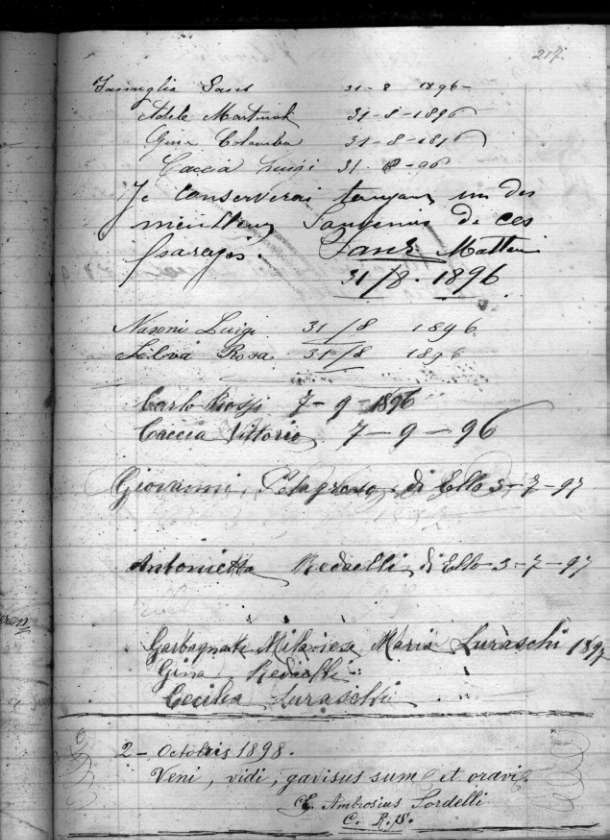 217.
Famiglia Sans 31-8 1896
Adele Martinoli 31-8-1896
Colomba 31-8-1896
Caccia Luigi 31-8-96
Je conserverai toujours un des
meilleurs Souvenirs de ces
parages. Sans Mattei
31/8. 1896
Nasoni Luigi 31/8 1896
Rosa 31/8 1896
Carlo Rossi 7-9-1896
Caccia Vittorio 7-9-96
Giovanni di Ello 3-7-97
Antonietta Redaelli di Ello 3-7-97
Garbagnate Milanese Maria Luraschi 1897
Gina Redaelli
Cecilia Luraschi
2- Octobris 1898.
Veni, vidi, gavisus sum et oravi.
Ambrosius Sordelli
C. R. S.